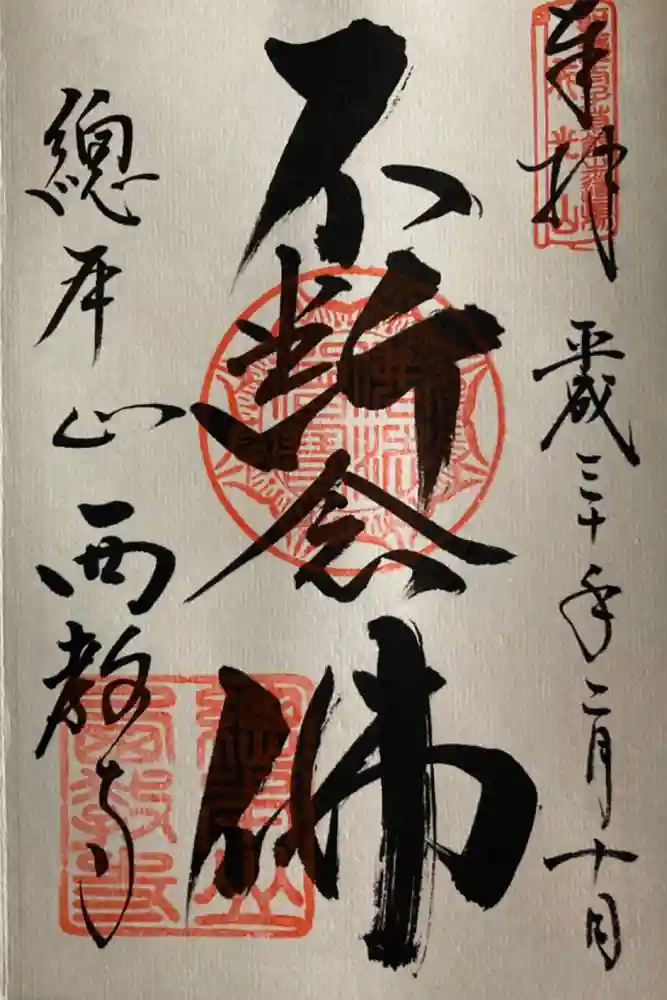 奉拝
平成三十年二月十日
不断念佛
總本山
西教寺